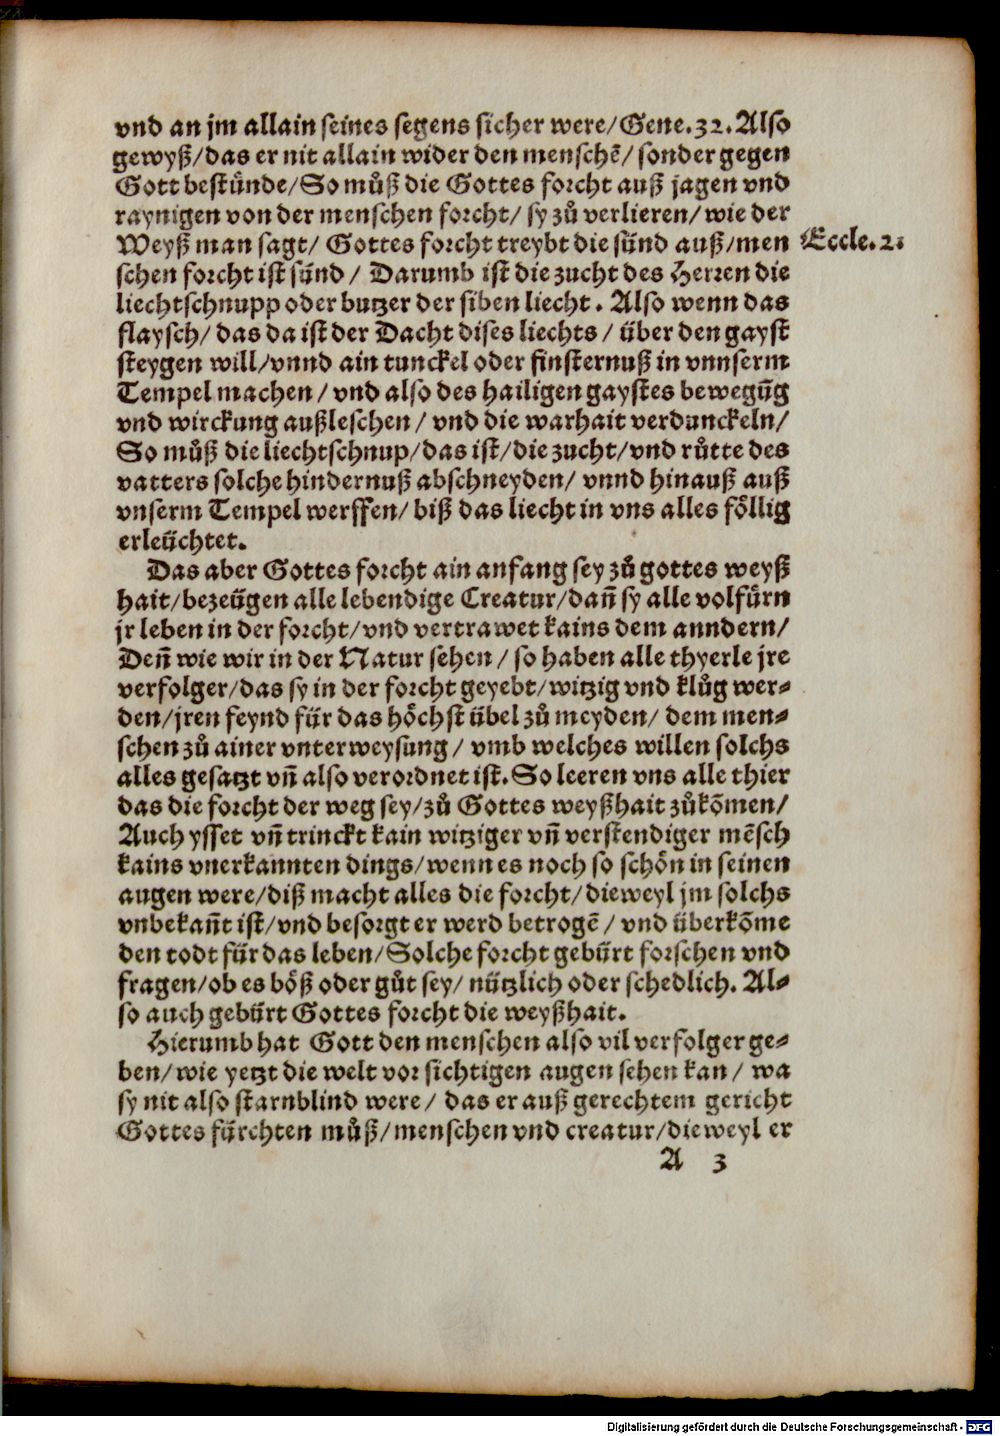 vnd an jm allain seines segens sicher were/Gene.32.Also
gewyß/das er nit allain wider den menschē/sonder gegen
Gott bestünde/So můß die Gottes forcht auß jagen vnd
raynigen von der menschen forcht/sy zů verlieren/wie der
Weyß man sagt/ Gottes forcht treybt die sünd auß/men
Eccle.2.
schen forcht ist sünd/ Darumb ist die zucht des Herren die
liechtschnupp oder butzer der siben liecht. Also wenn das
flaysch/das da ist der Dacht dises liechts/ über den gayst
steygen will/vnnd ain tunckel oder finsternuß in vnnserm
Tempel machen/vnd also des hailigen gaystes bewegūg
vnd wirckung außleschen/ vnd die warhait verdunckeln/
So můß die liechtschnup/das ist/die zucht/vnd růtte des
vatters solche hindernuß abschneyden/ vnnd hinauß auß
vnserm Tempel werffen/ biß das liecht in vns alles föllig
erleüchtet.
Das aber Gottes forcht ain anfang sey zů gottes weyß
hait/bezeügen alle lebendige Creatur/dañ sy alle volfürn
jr leben in der forcht/vnd vertrawet kains dem anndern/
Deñ wie wir in der Natur sehen/ so haben alle thyerle jre
verfolger/das sy in der forcht geyebt/witzig vnd klůg wer-
den/jren feynd für das höchst übel zů meyden/ dem men-
schen zů ainer vnterweysung/ vmb welches willen solchs
alles gesatzt vñ also verordnet ist. So leeren vns alle thier
das die forcht der weg sey/zů Gottes weyßhait zůkōmen/
Auch ysset vñ trinckt kain witziger vñ verstendiger mēsch
kains vnerkannten dings/wenn es noch so schön in seinen
augen were/diß macht alles die forcht/dieweyl jm solchs
vnbekañt ist/vnd besorgt er werd betrogē/ vnd überkōme
den todt für das leben/Solche forcht gebürt forschen vnd
fragen/ob es böß oder gůt sey/ nützlich oder schedlich. Al-
so auch gebürt Gottes forcht die weyßhait.
Hierumb hat Gott den menschen also vil verfolger ge-
ben/wie yetzt die welt vor sichtigen augen sehen kan/ wa
sy nit also starnblind were/ das er auß gerechtem gericht
Gottes fürchten můß/menschen vnd creatur/dieweyl er
A 3
Digitalisierung gefördert durch die Deutsche Forschungsgemeinschaft - DFG